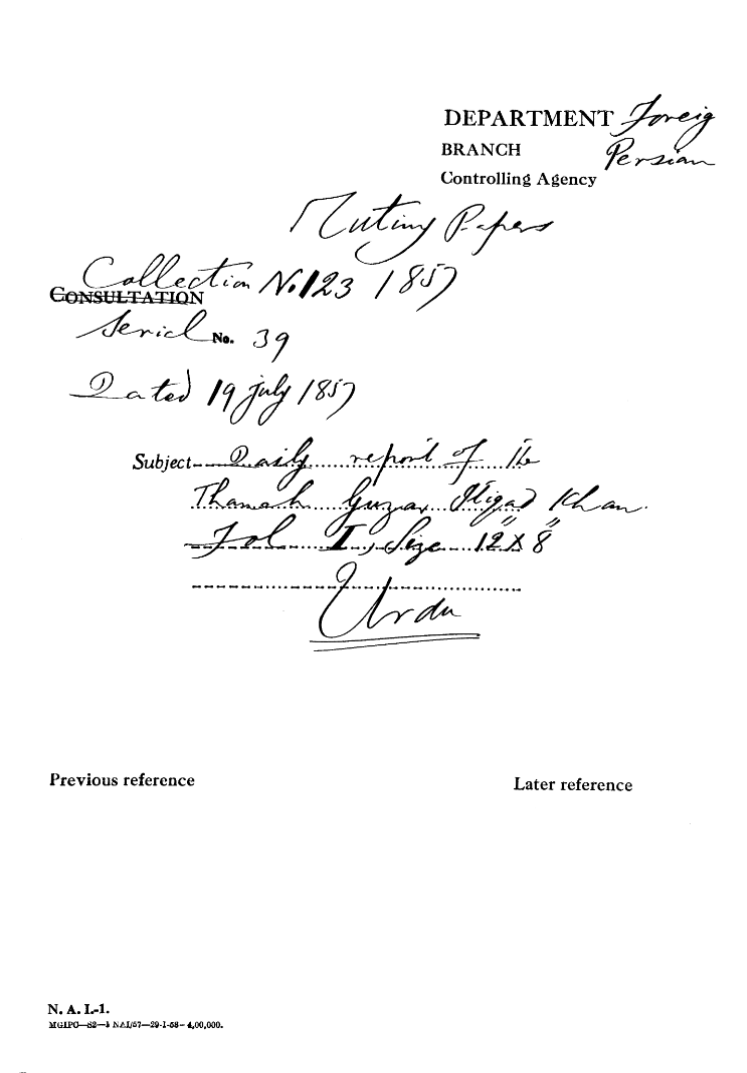 DEPARTMENT Foreig
BRANCH Persian
Controlling Agency
Mutiny Papers
Collection No. 123 1857
CONSULTATION
Serial No. 39
Dated 19 july 1857
Subject Daily report of the
Thanah Guzar Itiqad Khan.
Fol I, Size 12" X 8"
Urdu
Previous reference
Later reference
N. A. I.-1.
MGIPC—S2—3 NAI/57—29-1-58—4,00,000.